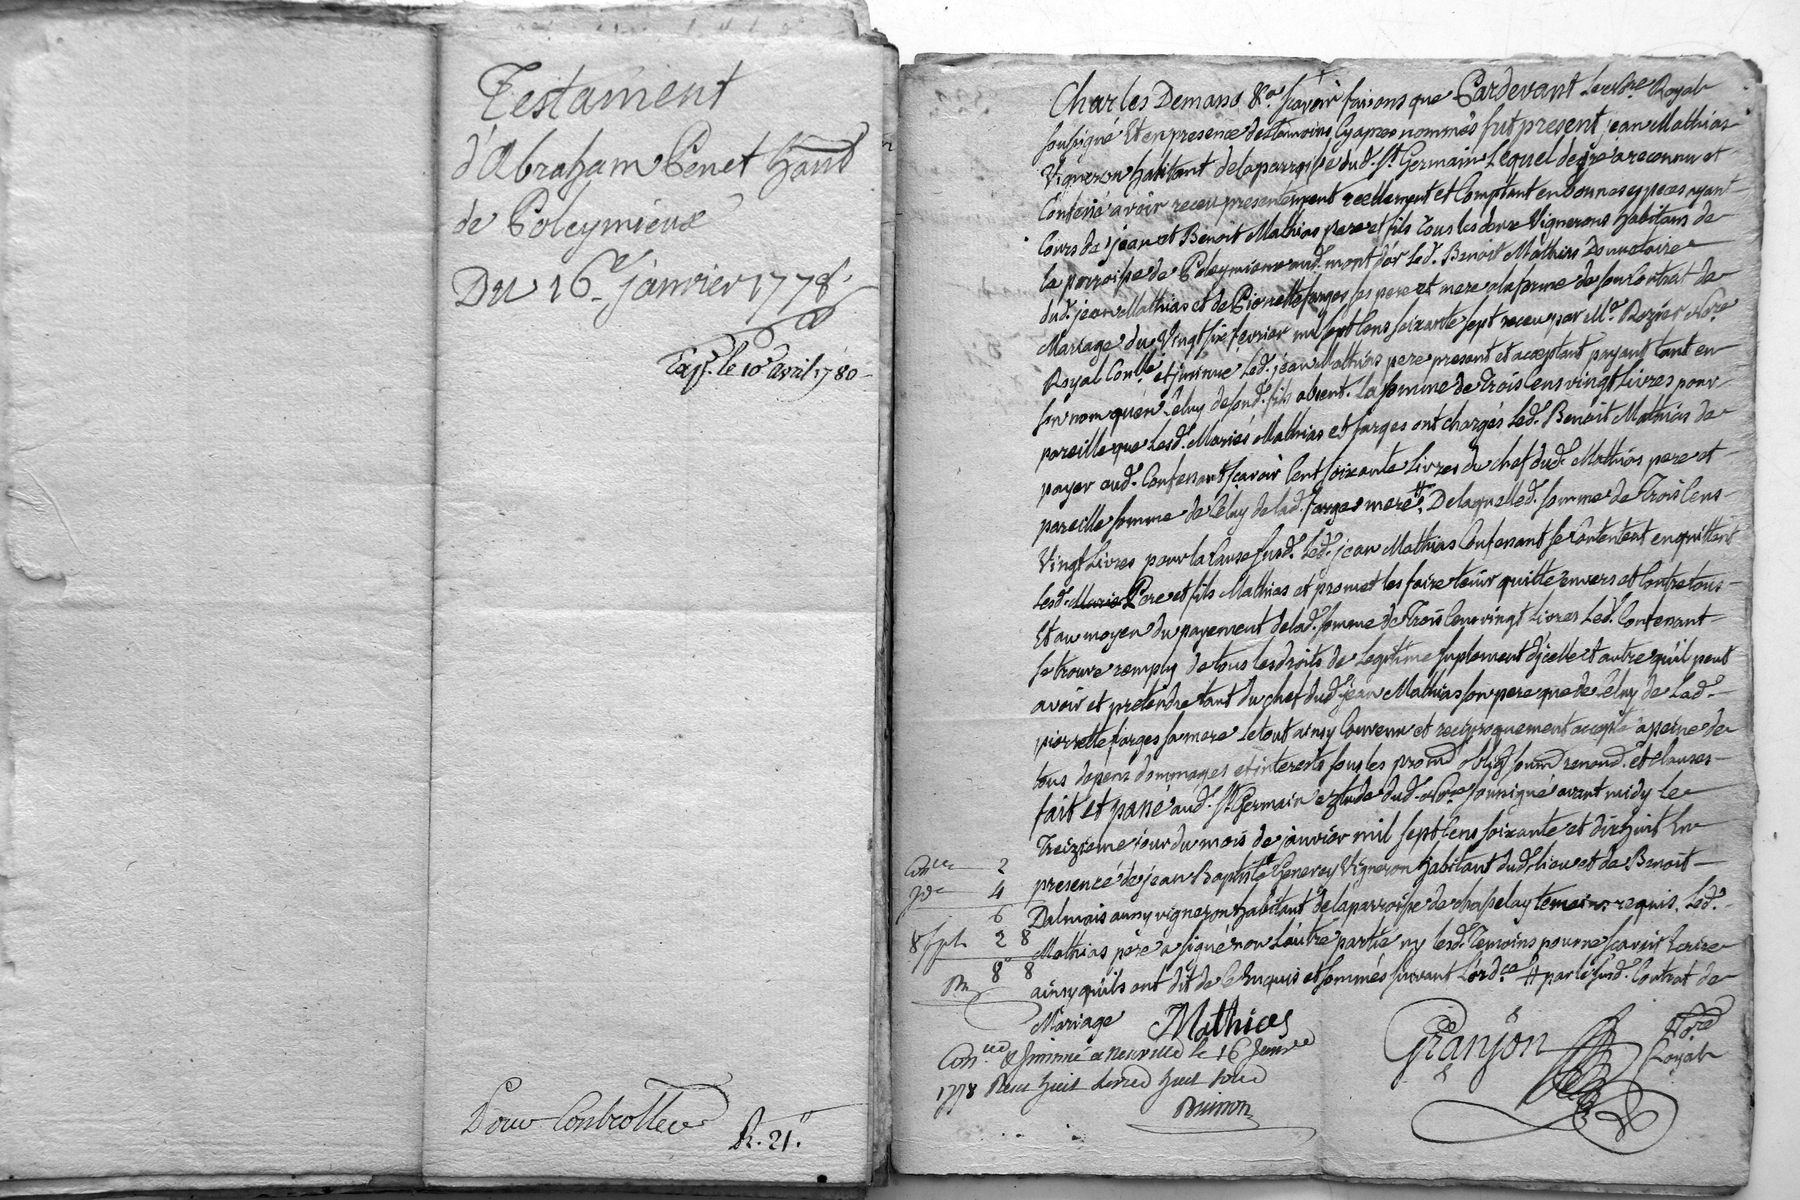 Testament
d'Abraham Penet habt
de Poleymieux
Du 16e janvier 1778
Exp. le 10 avril 1780
Pour Controlle
R. 21"
Charles Demasso &a sçavoir faisons que Pardevant le Nore Royal
soussigné Et en presence des temoins Cy apres nommés fut present jean Mathias
Vigneron habitant de la parroisse dud. St Germain Lequel de gré a reconnu et
Confessé avoir receu presentement reellement et Comptant en bonnes especes ayant
Cours de jean et Benoit Mathias pere et fils tous les deux Vignerons habitans de
la parroisse de Poleymieux aud. mont d'or led. Benoit Mathias Donnataire
dud. jean Mathias et de Pierrette farges ses pere et mere a la forme de son Contrat de
Mariage du Vingt six fevrier mil sept Cens soixante sept receu par Me Rozier Nore
Royal Conllé et insinué Led. jean Mathias pere present et acceptant payant tant en
son nom qu'en Celuy de sond. fils absent. La somme de Trois Cens vingt Livres pour
pareille que Lesd. Mariés Mathias et farges ont chargés Led. Benoit Mathias de
payer aud. Confessant sçavoir Cent soixante Livres du chef dud. Mathias pere et
pareille somme de Celuy de lad. farges mere #. De laquelle d. somme de Trois Cens
Vingt Livres pour la Cause susd. Led. jean Mathias Confessant se Contentent en quittant
Lesd. Maries Pere et fils Mathias et promet les faire tenir quitte envers et Contre tous
Et au moyen du payement de lad. somme de Trois Cens vingt Livres Led. Confessant
se trouve remply de tous les droits de Legitime suplement d'jcelle et autre qu'il peut
avoir et pretendre tant du chef dud. jean Mathias son pere que de Celuy de Lad.
pierrette farges sa mere Le tout ainsy Convenu et reciproquement accepté a peine de
tous depens dommages et interests sous les prom. oblig. soum. renond. et Clauses
fait et passé aud. St Germain etude dud. Nore soussigné avant midy le
Treizieme jour du mois de janvier mil sept Cens soixante et dix huit En
presence de jean Baptiste Genevay Vigneron habitant dud. lieu et de Benoit
Dalmais aussy vigneron habitant de la parroisse de chasselay temoins requis. Led.
Mathias pere a signé non L'autre partie ny lesd. temoins pour ne sçavoir Ecrire
ainsy qu'ils ont dit de ce Enquis et sommés suivant L'ordce # par le susd. Contrat de
Mariage
2
4
6
8 s pl 2 8
8 8
Mathias
Granjon Nore Royal
Conllé & Insinué a neuville le 16 Janvier
1778 Receu huit Livres huit sous
Buisson